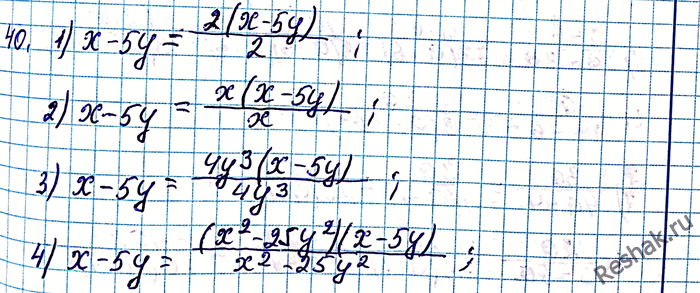 40. 1) x-5y = 2(x-5y)/2 ;
2) x-5y = x(x-5y)/x ;
3) x-5y = 4y³(x-5y)/4y³ ;
4) x-5y = (x²-25y²)(x-5y)/x²-25y² ;
Reshak.ru